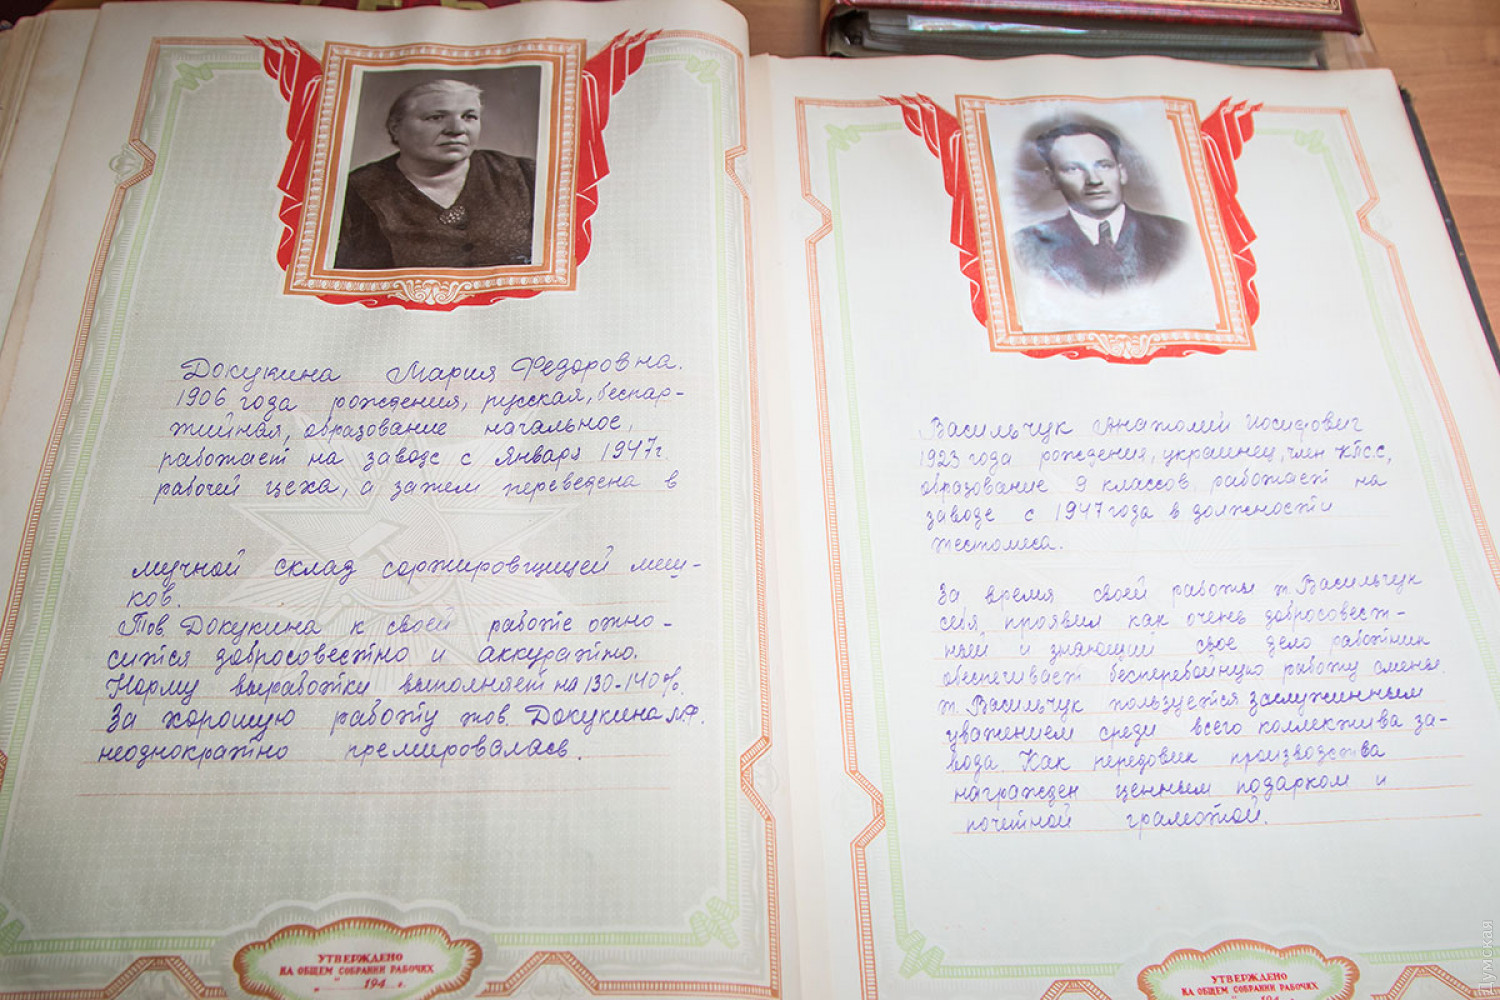 Докукина Мария Федоровна.
1906 года рождения, русская, беспар-
тийная, образование начальное,
работает на заводе с января 1947 г.
рабочей цеха, а затем переведена в
мучной склад сортировщицей меш-
ков.
Тов. Докукина к своей работе отно-
сится добросовестно и аккуратно.
Норму выработки выполняет на 130-140%.
За хорошую работу тов. Докукина М.Ф.
неоднократно премировалась.
УТВЕРЖДЕНО
НА ОБЩЕМ СОБРАНИИ РАБОЧИХ
" 194 г.
Васильчук Анатолий Иосифович
1923 года рождения, украинец, член КПСС,
образование 9 классов работает на
заводе с 1947 года в должности
тестомеса.
За время своей работы т. Васильчук
себя проявил как очень добросовест-
ный и знающий свое дело работник
обеспечивает бесперебойную работу смены.
т. Васильчук пользуется заслуженным
уважением среди всего коллектива за-
вода. Как передовик производства
награжден ценным подарком и
почетной грамотой.
УТВЕРЖДЕНО
НА ОБЩЕМ СОБРАНИИ РАБОЧИХ
" 194 г.
Думская